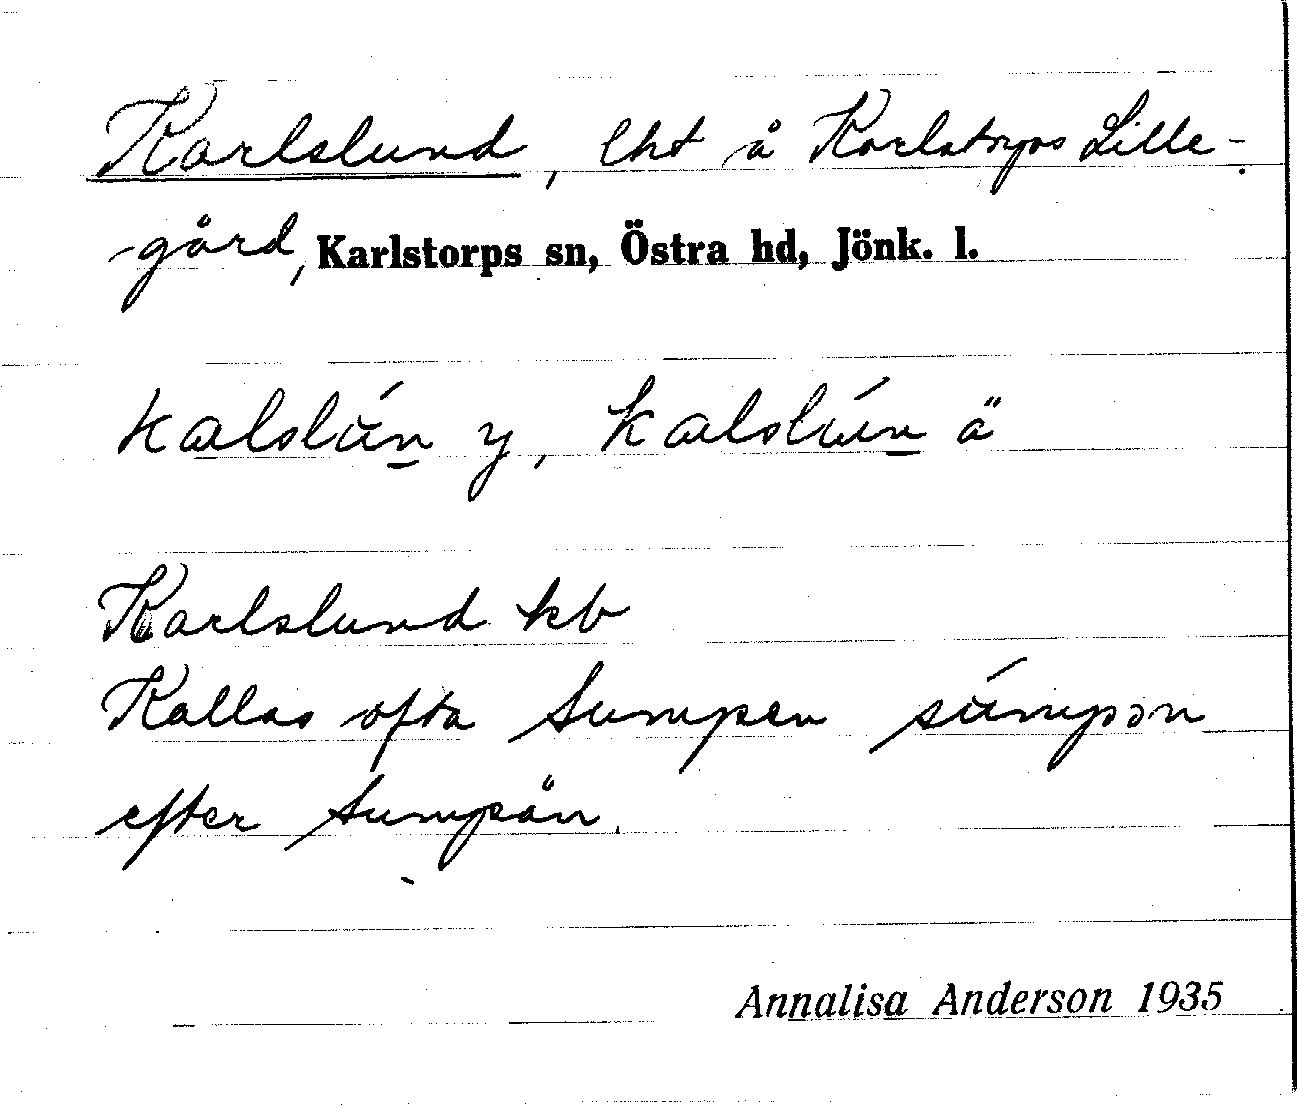 Karlslund, lht å Karlstorps Lille-
gård, Karlstorps sn, Östra hd, Jönk. l.
kalslún y, kalslún ä
Karlslund kb
Kallas ofta Sumpen súmpən
efter Sumpån.
Annalisa Anderson 1935